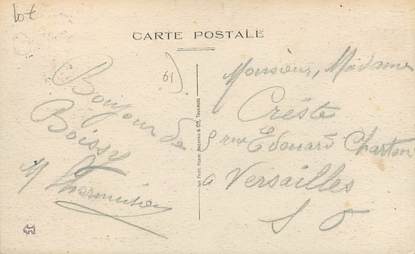 lot
CARTE POSTALE
61
Bonjour de
Boissy
Monsieur, Madame
Créste
8 rue Edouard Charton
a Versailles
S O